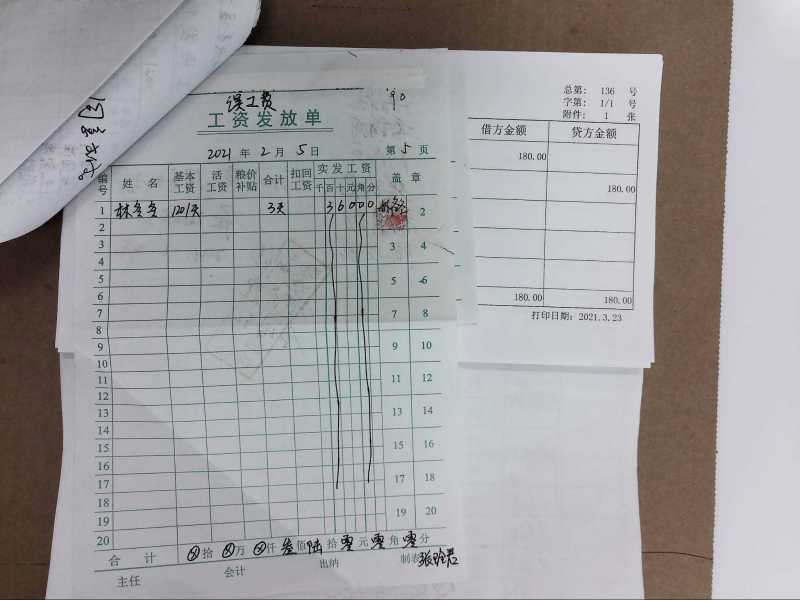 误工费
'90
工资发放单
2021 年 2 月 5 日 第 5 页
编号 姓名 基本工资 活工资 粮价补贴 合计 扣回工资 实发工资 盖章
千 百 十 元 角 分
1 林冬冬 120/天 3天 3 6 0 0 0 2
2
3 3 4
4
5 5 6
6
7 7 8
8
9 9 10
10
11 11 12
12
13 13 14
14
15 15 16
16
17 17 18
18
19 19 20
20
合计 ⊗拾⊗万⊗仟叁佰陆拾零元零角零分
主任 会计 出纳 制表
总第: 136 号
字第: 1/1 号
附件: 1 张
借方金额 贷方金额
180.00
180.00
180.00 180.00
打印日期: 2021.3.23